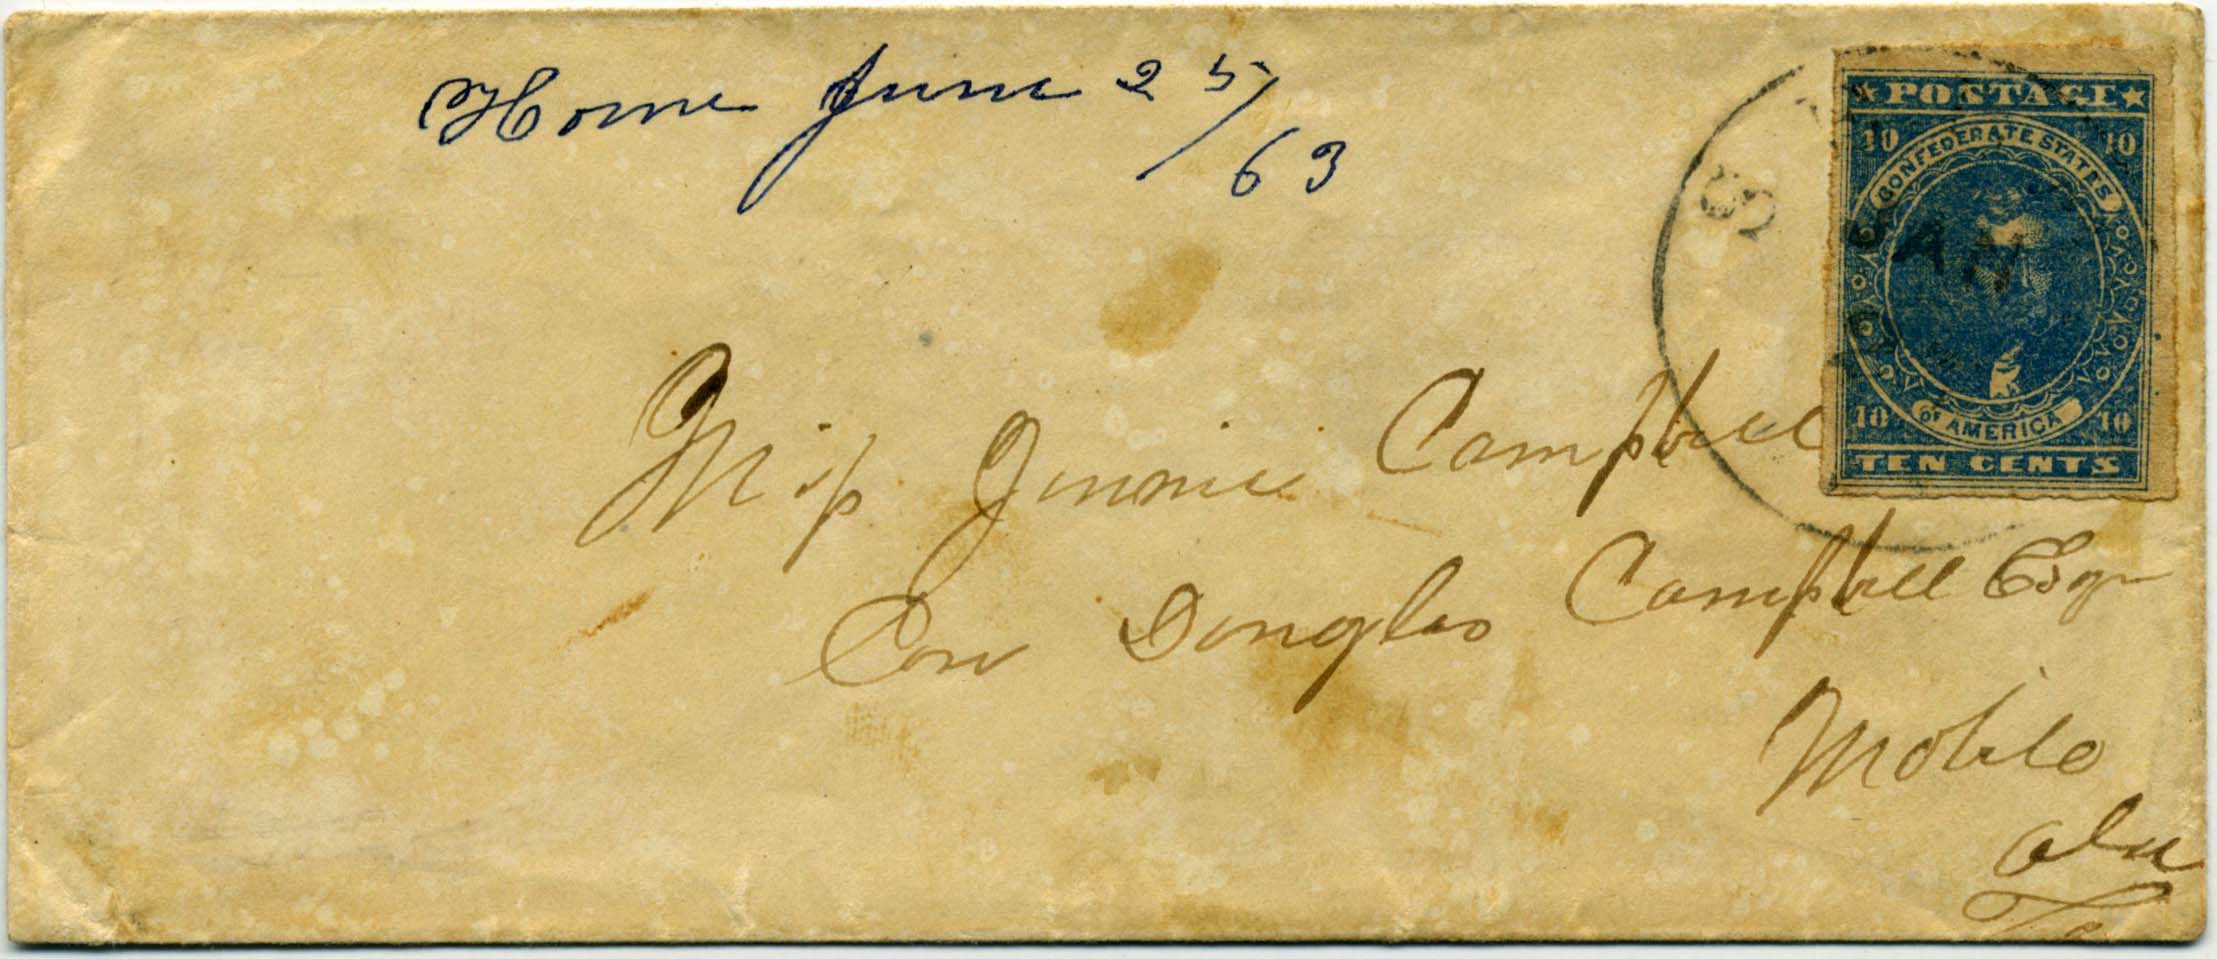 Home June 25/63
★POSTAGE★
10 10
CONFEDERATE STATES
JAN
10 10
OF AMERICA
TEN CENTS
Miss Jennie Campbell
Care Douglas Campbell Esqr
Mobile
Ala